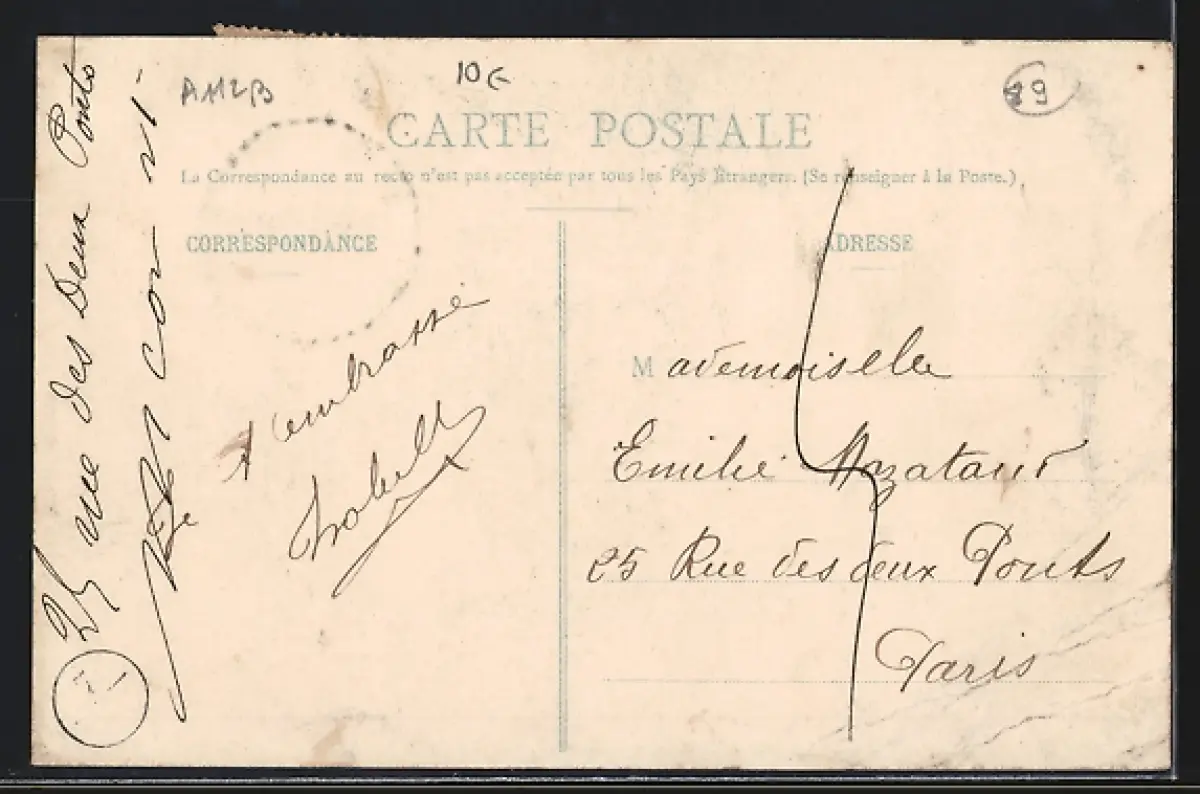 A112B
10€
89
CARTE POSTALE
La Correspondance au recto n'est pas acceptée par tous les Pays Étrangers. (Se renseigner à la Poste.)
CORRESPONDANCE
ADRESSE
t'embrasse
Isabelle
Mademoiselle
Emilie
25 Rue des deux Ponts
Paris
rue des Deux Ponts